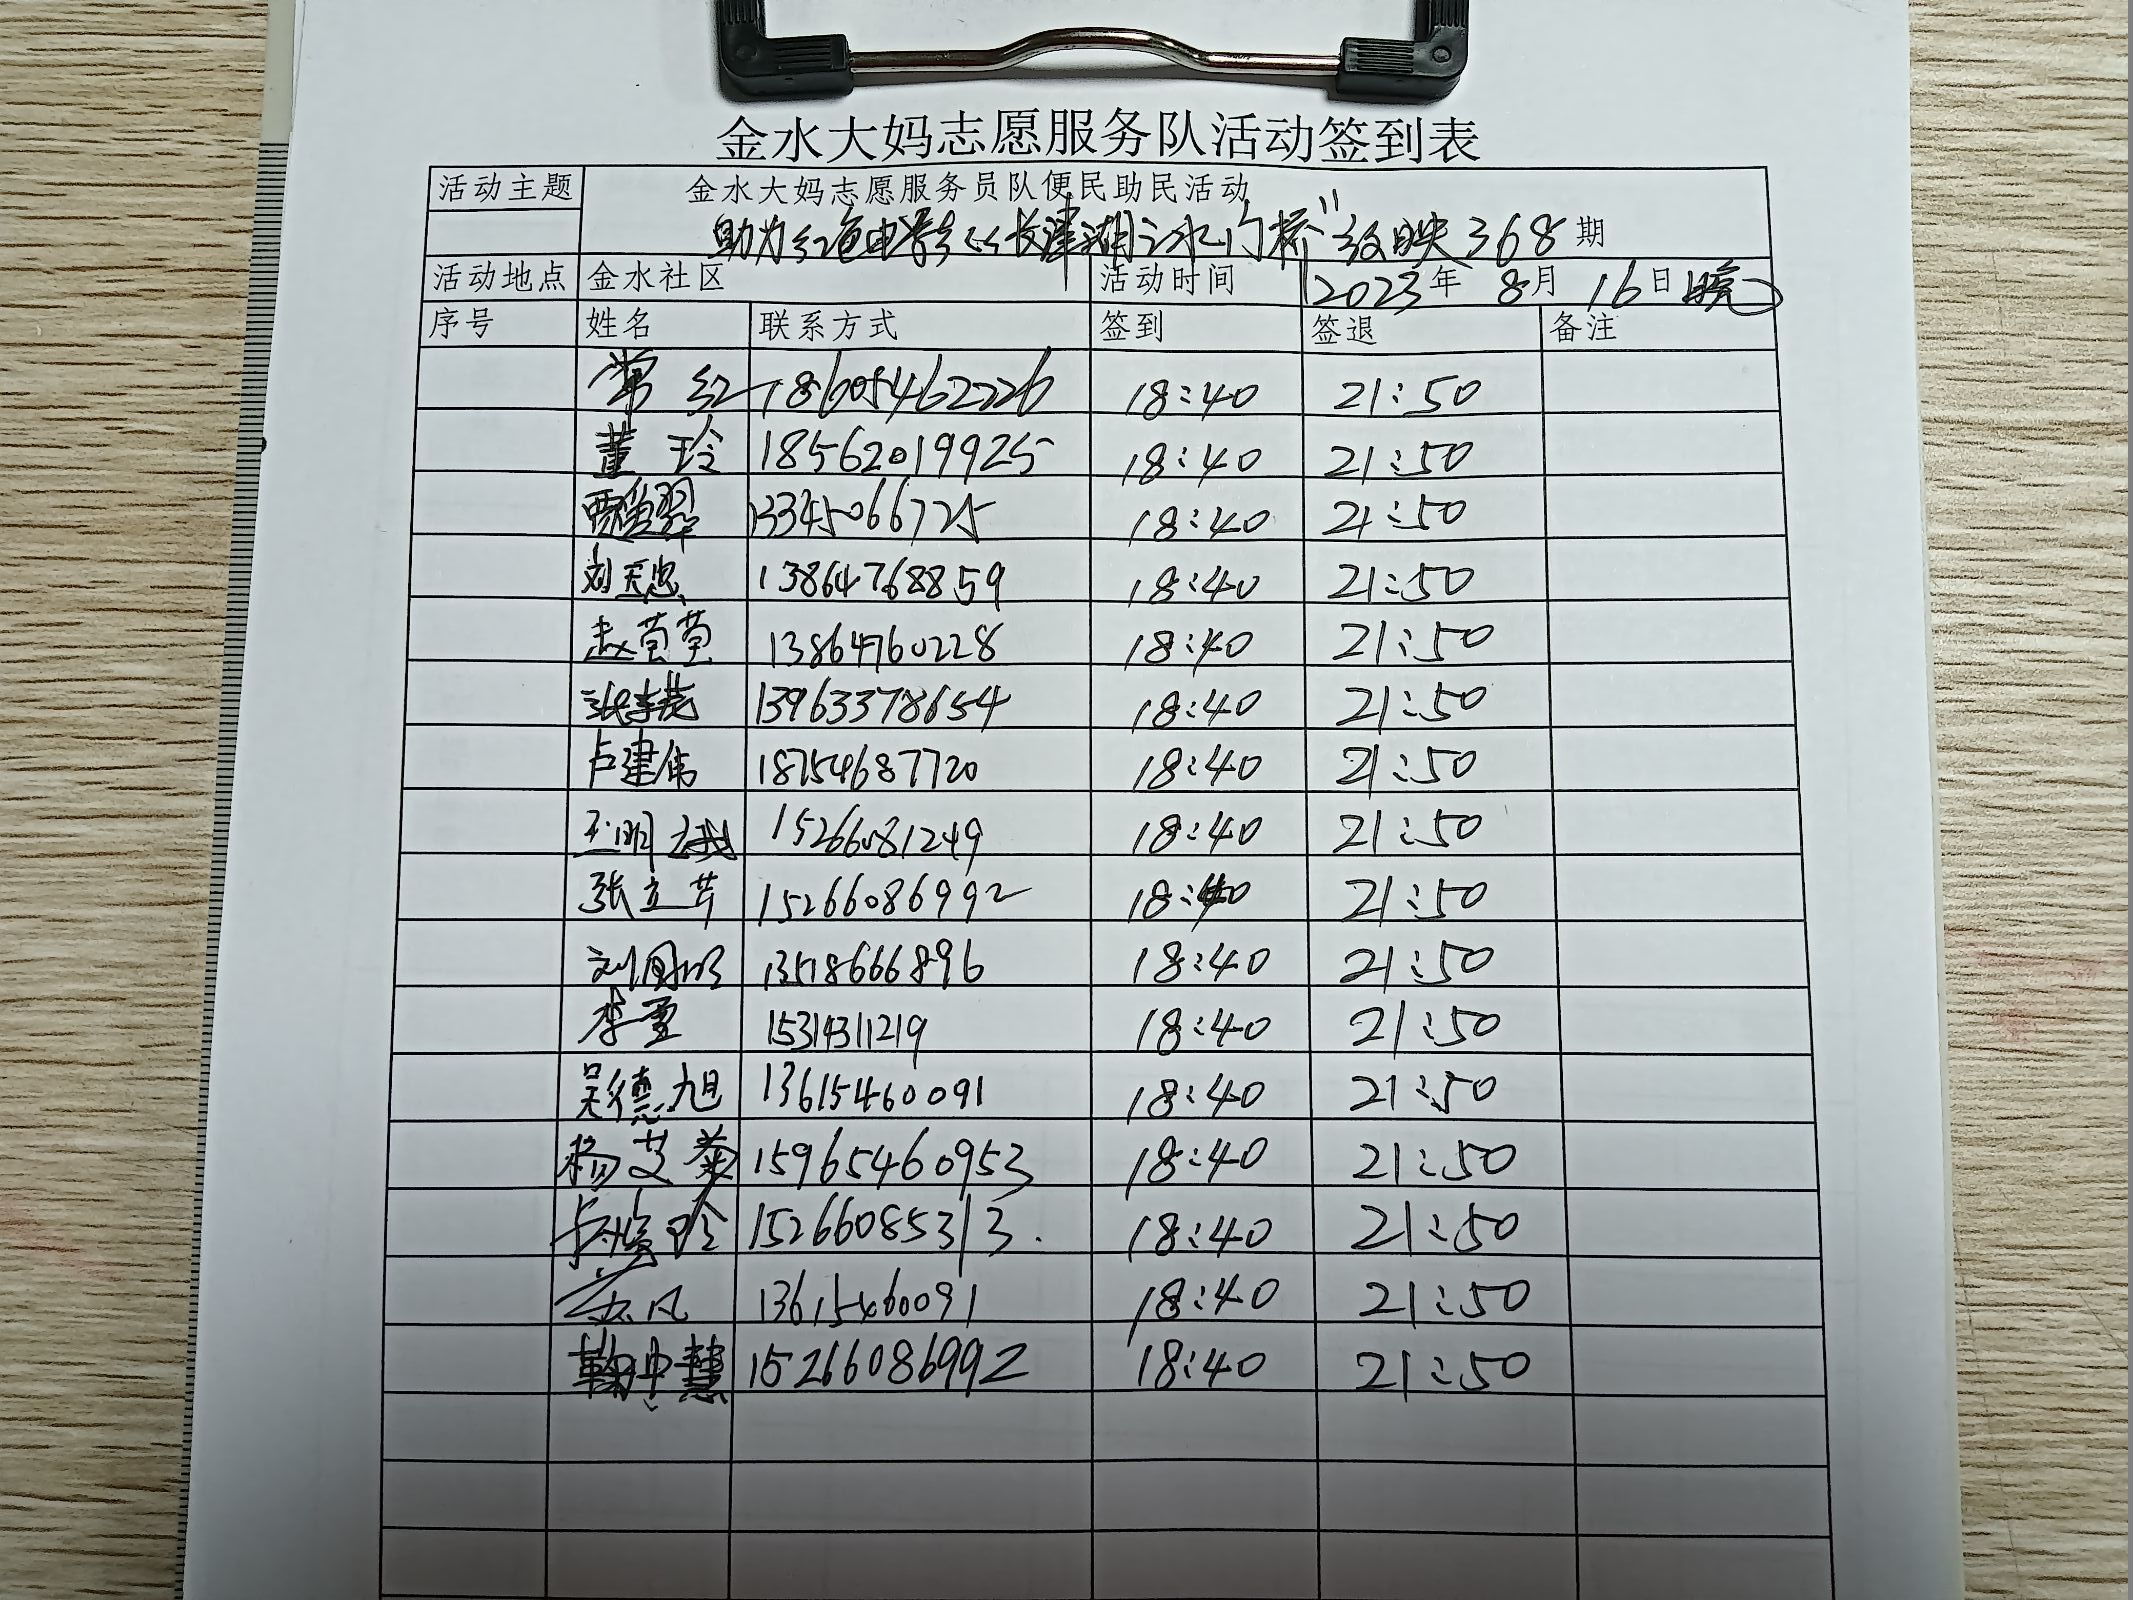 金水大妈志愿服务队活动签到表
活动主题 金水大妈志愿服务员队便民助民活动
助力红色电影《长津湖之水门桥"放映368期
活动地点 金水社区 活动时间 2023年 8月 16日晚
序号 姓名 联系方式 签到 签退 备注
常红 18605462226 18:40 21:50
董玲 18562019925 18:40 21:50
贾爱翠 13345066725 18:40 21:50
刘天忠 13864768859 18:40 21:50
赵苗苗 13864760228 18:40 21:50
13963378654 18:40 21:50
卢建伟 18754687720 18:40 21:50
王明 15266081249 18:40 21:50
张立芹 15266086992 18:40 21:50
刘 18:40 21:50
李雪 15314311219 18:40 21:50
吴德旭 13615460091 18:40 21:50
杨艾菊 15965460953 18:40 21:50
玲 15266085313. 18:40 21:50
13615460091 18:40 21:50
鞠中慧 15266086992 18:40 21:50